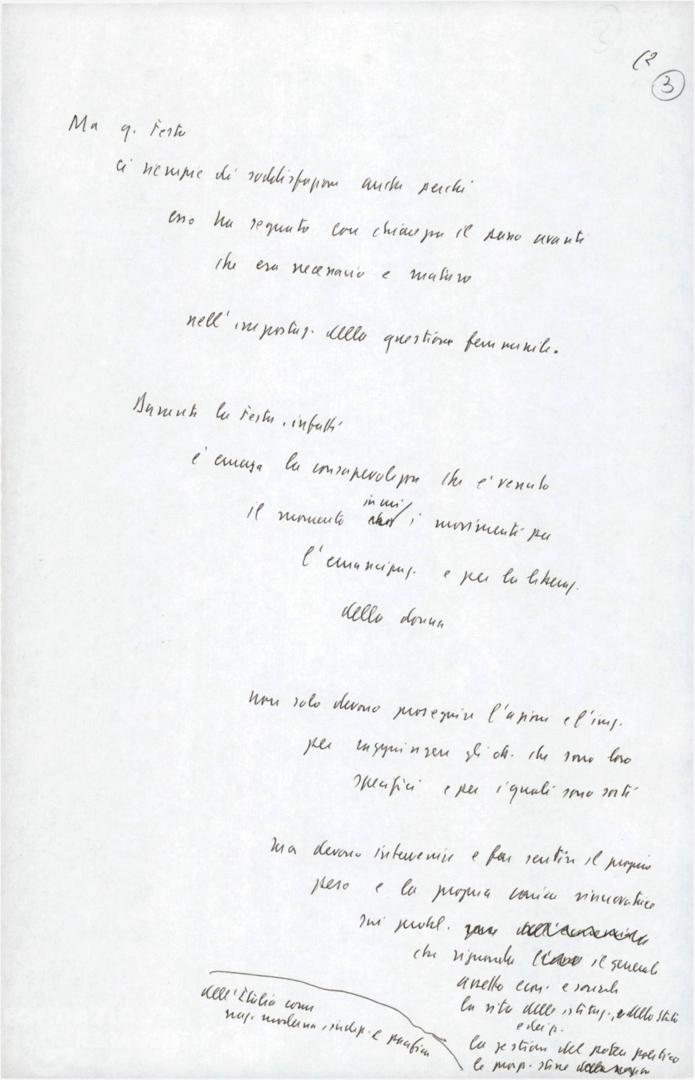 (2
3
Ma q. Festa
ci riempie di soddisfazione anche perché
essa ha segnato con chiarezza il passo avanti
che era necessario e maturo
nell'impostaz. della questione femminile.
Durante la Festa, infatti
è emersa la consapevolezza che è venuto
in cui
il momento i movimenti per
l'emancipaz. e per la liberaz.
della donna
non solo devono proseguire l'azione e l'imp.
per raggiungere gli ob. che sono loro
specifici e per i quali sono sorti
ma devono intervenire e far sentire il proprio
peso e la propria carica rinnovatrice
sui probl.
che riguarda il generale
assetto econ. e sociale
la vita delle istituz. e dello Stato
e dei p.
la gestione del potere politico
le prosp. stesse
dell'Italia come
naz. moderna, indip. e pacifica